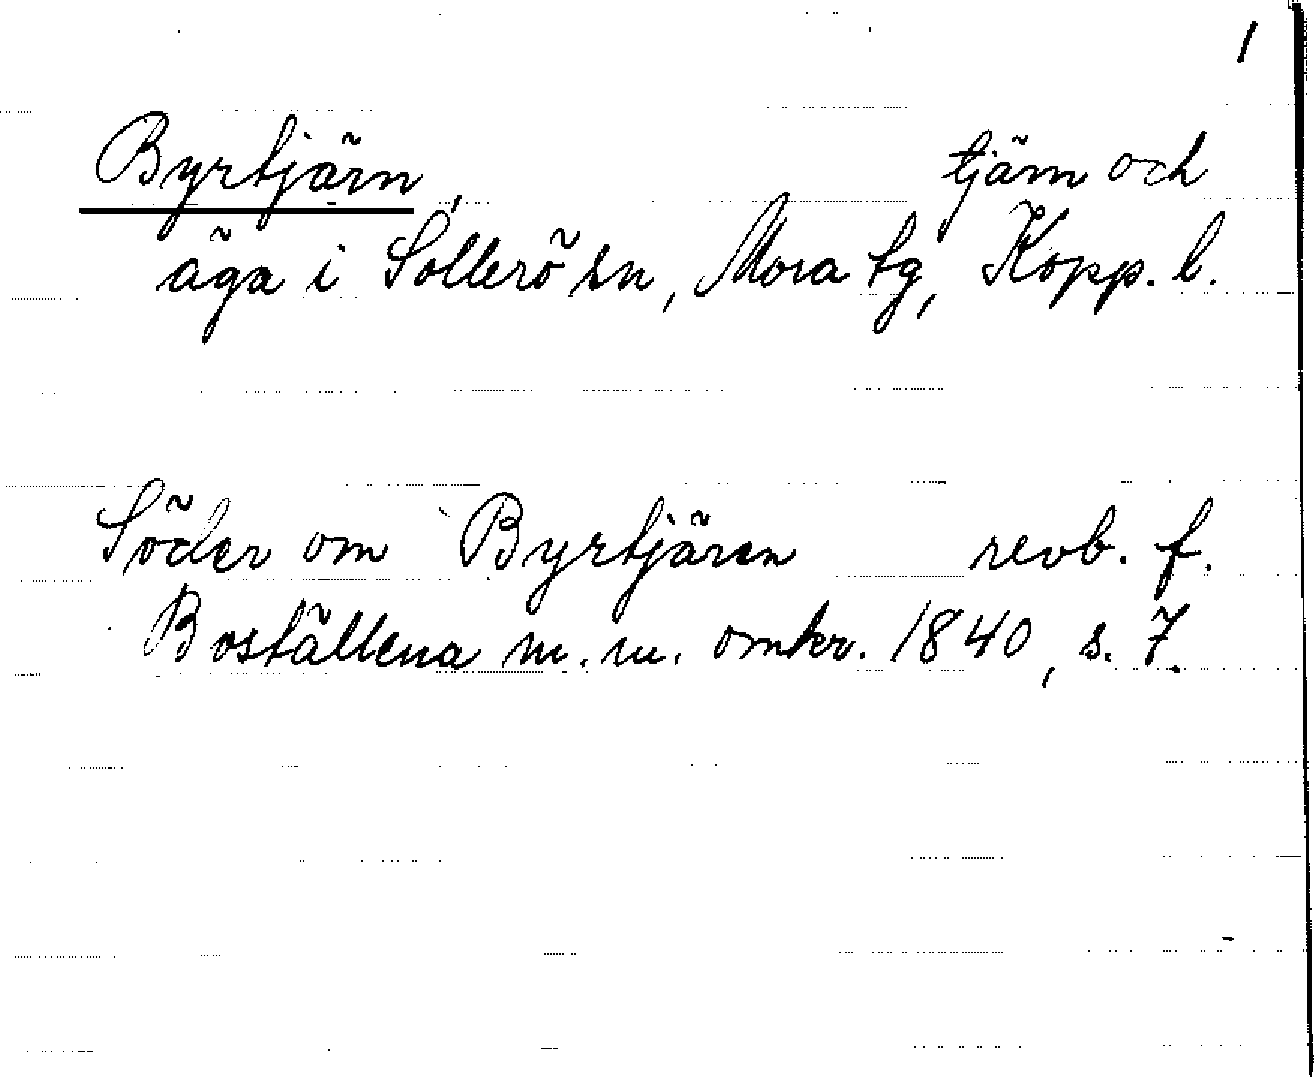 1
Byrtjärn, tjärn och
äga i Sollerö sn, Mora tg, Kopp. l.
Söder om Byrtjären revb. f.
Boställena m.m. omkr. 1840, s. 7.